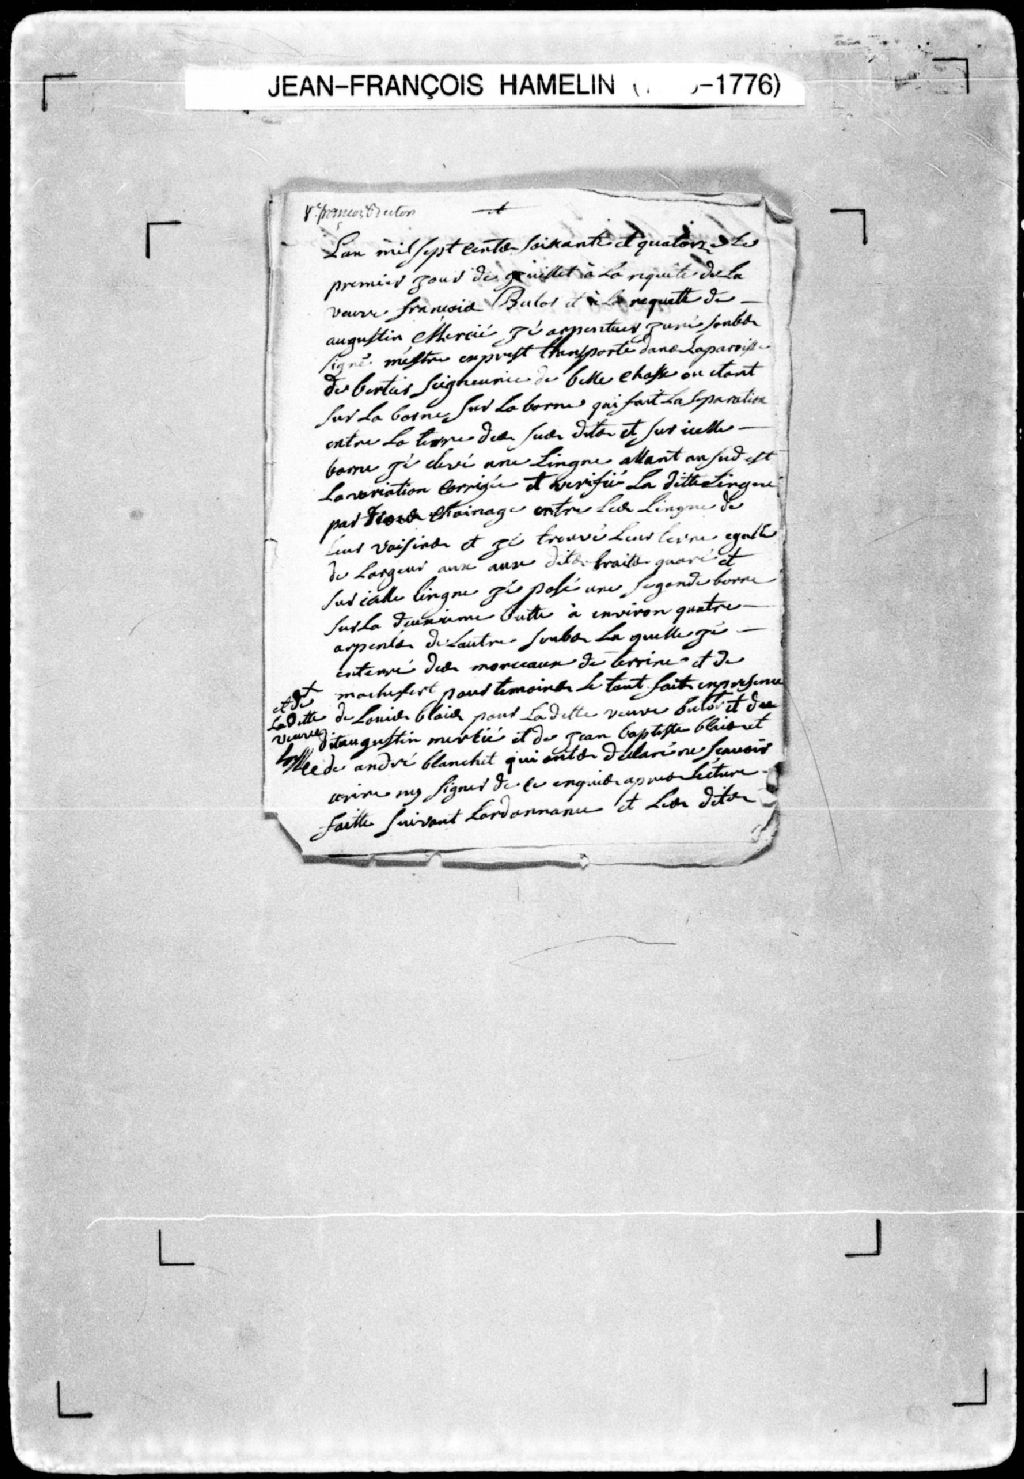 JEAN-FRANÇOIS HAMELIN ( -1776)
Vve françois Buton
Lan mil sept cents soixante et quatorze le
premier jour de juillet à la requête de la
veuve françois Butos et à la requette de
augustin Mercié jé arpenteur juré soubs
signé mestre expres transporté dans la paroisse
de bertier seigneurie de belle chasse ou étant
sur la borne sur la borne qui fait la separation
entre la terre des sus dits et sur icelle
borne jé elevé une lingne allant au sud est
la variation corrigée et verifié la ditte lingne
par chainage entre les lingne de
leurs voisins et jé trouvé leurs terre egalle
de largeur aux aux dits traits quaré et
sur icelle lingne jé posé une segonde borne
sur la deuxieme butte à environ quatre
arpents de lautre soubs la quelle jé
enterré des morceaux de terrine et de
machefert pour temoins le tout fait en presence
de louis blais pour la ditte veuve butos et du
dit augustin mertié et de jean baptiste blais et
de andré blanchet qui onts declaré ne scavoir
écrire ny signer de ce enquis apres lecture
faitte suivant lordonnance et les dits
et de
la ditte
veuve